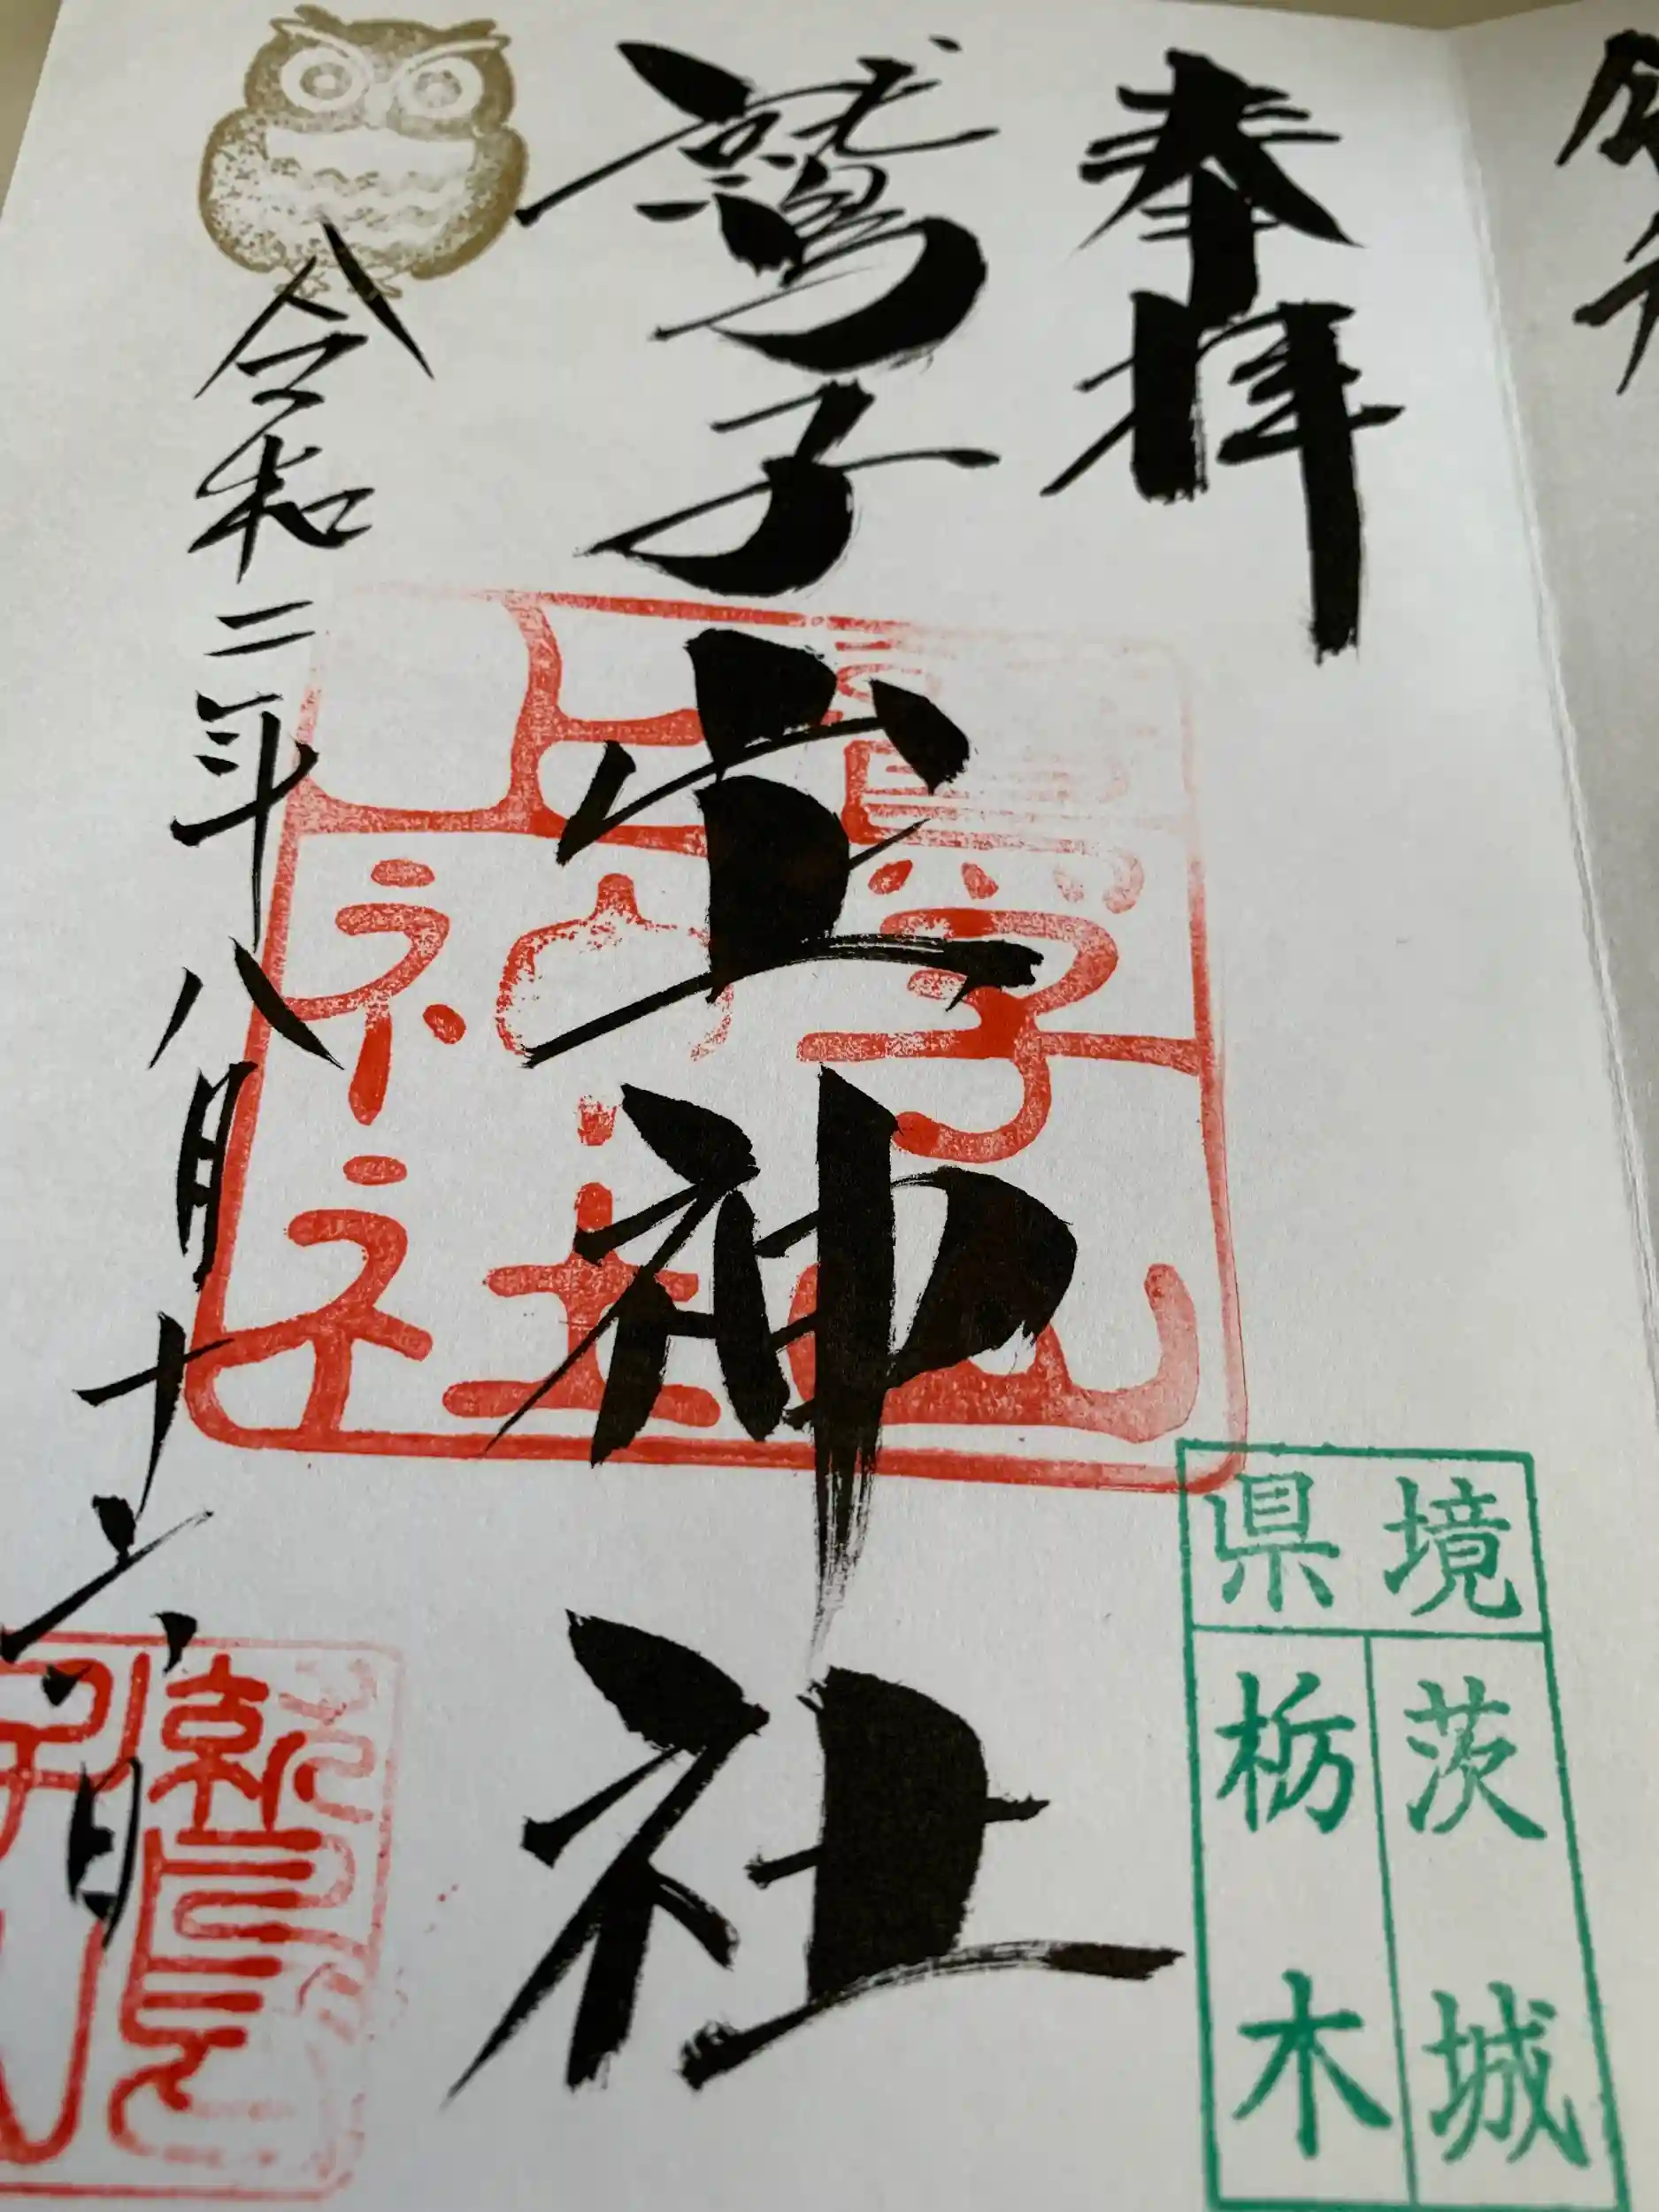 奉拝
鷲子山上神社
令和二年八月十六日
鷲子山
上神社
県境
茨城
栃木